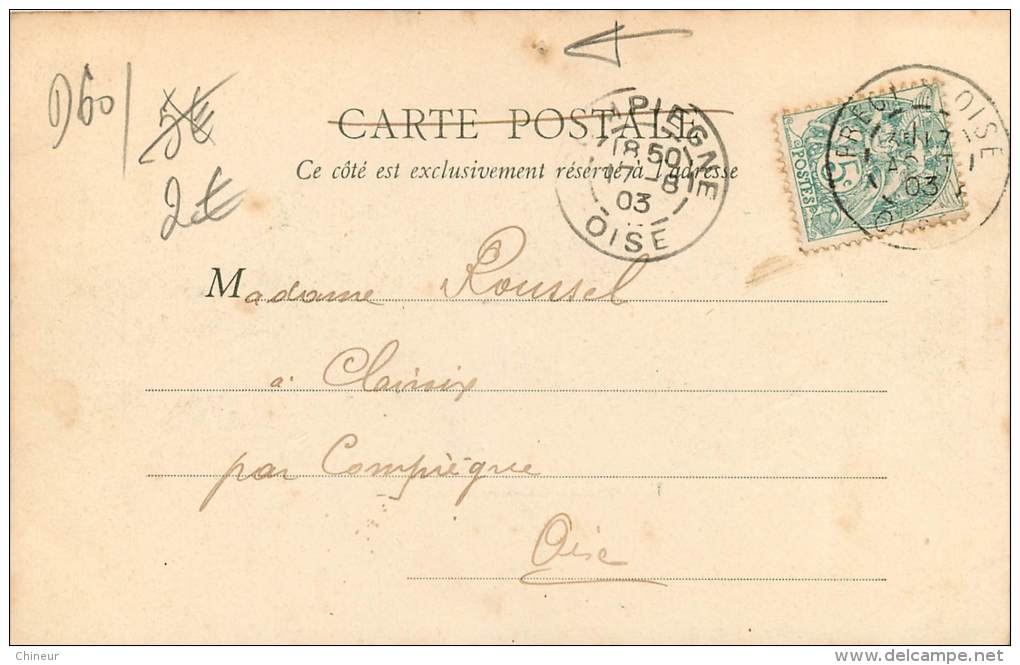 D60/
5€
2€
CARTE POSTALE
Ce côté est exclusivement réservé à l'adresse
MPIEGNE
18 50
17 -8
03
OISE
OISE
AOUT
03
5c
POSTES
Madame Roussel
à Clairoix
par Compiègne
Oise
Chineur
delcampe.net